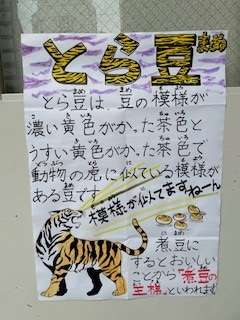 とら豆
とら豆は、豆の模様が
濃い黄色がかった茶色と
うすい黄色がかった茶色で
動物の虎に似ている模様が
ある豆です。
模様が似てますねーん
煮豆に
するとおいしい
ことから「煮豆の
王様」といわれます